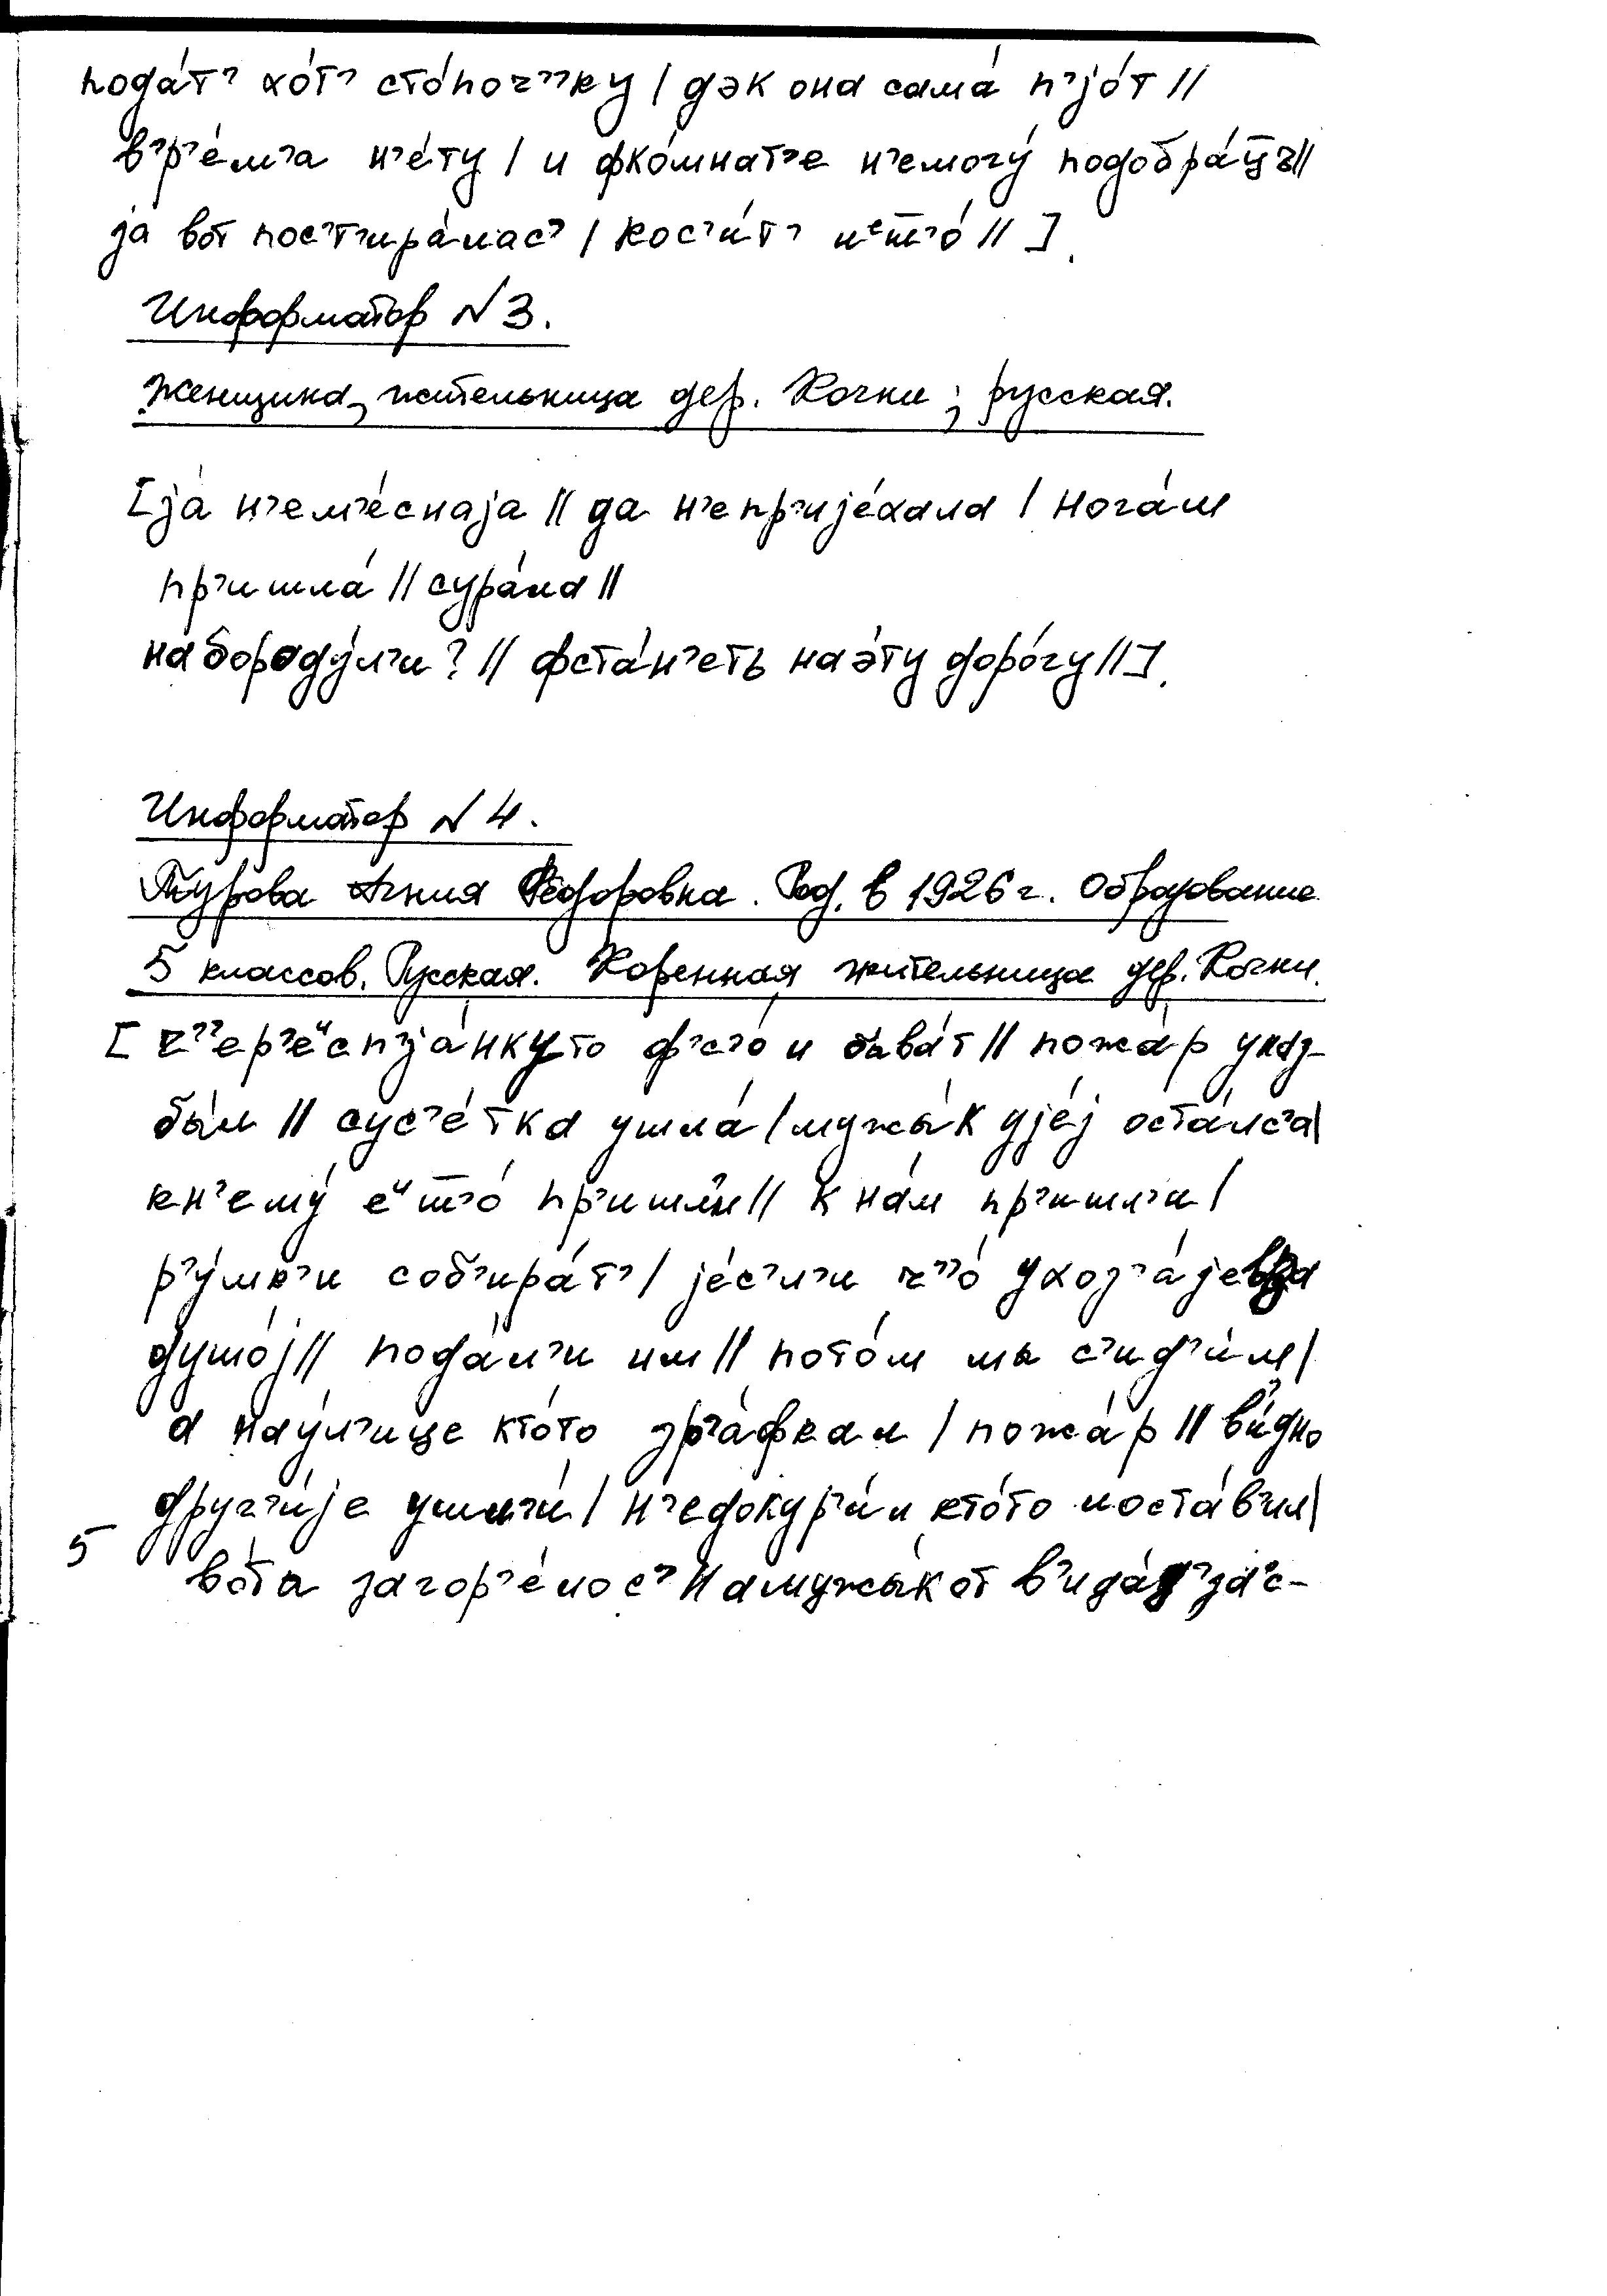 пода́т’ хо́т’ сто́поч’’ку / дэк она сама́ п’jо́т //
в’р’е́м’а н’е́ту / и фко́мнат’е н’емогу́ подобра́т̅ц̅ъ //
jа́ во̂т пос’т’ира́лас’ / кос’и́т’ иᵉшт’о́ // ].
Информатор №3.
Женщина, жительница дер. Кочки; русская.
[jа́ н’ем’е́снаjа // да н’епр’иjе́хала / нога́м
пр’ишла́ // сура́ла //
на́бороду́л’и? // фста́н’еть наэ́ту доро́гу // ].
Информатор №4.
Турова Агния Фёдоровна. Род. в 1926 г. Образование
5 классов. Русская. Коренная жительница дер. Кочки.
[ ч’’ер’еᵘсп’jа́нкуто ф’с’о́ и быва́т // пожа́р уна́з-
бы́л // сус’е́тка ушла́ / мужы́к уjе́j оста́лс’а /
кн’ему́ еᵘшт’о́ пр’ишл’и́ // к на́м пр’ишл’и /
р’у́мк’и соб’ира́т’ / jе́с’л’и ч’’о́ уход’а́ jе
душо́j // пода́л’и им // пото́м мы с’ид’и́м /
а нау́л’ице кто́то зр’а́фкал / пожа́р // ви́дно
друг’и́jе ушл’и́ / н’едокур’и́л кто́то иоста́в’ил /
5 во́та загор’е́лос’ // амужы́кот